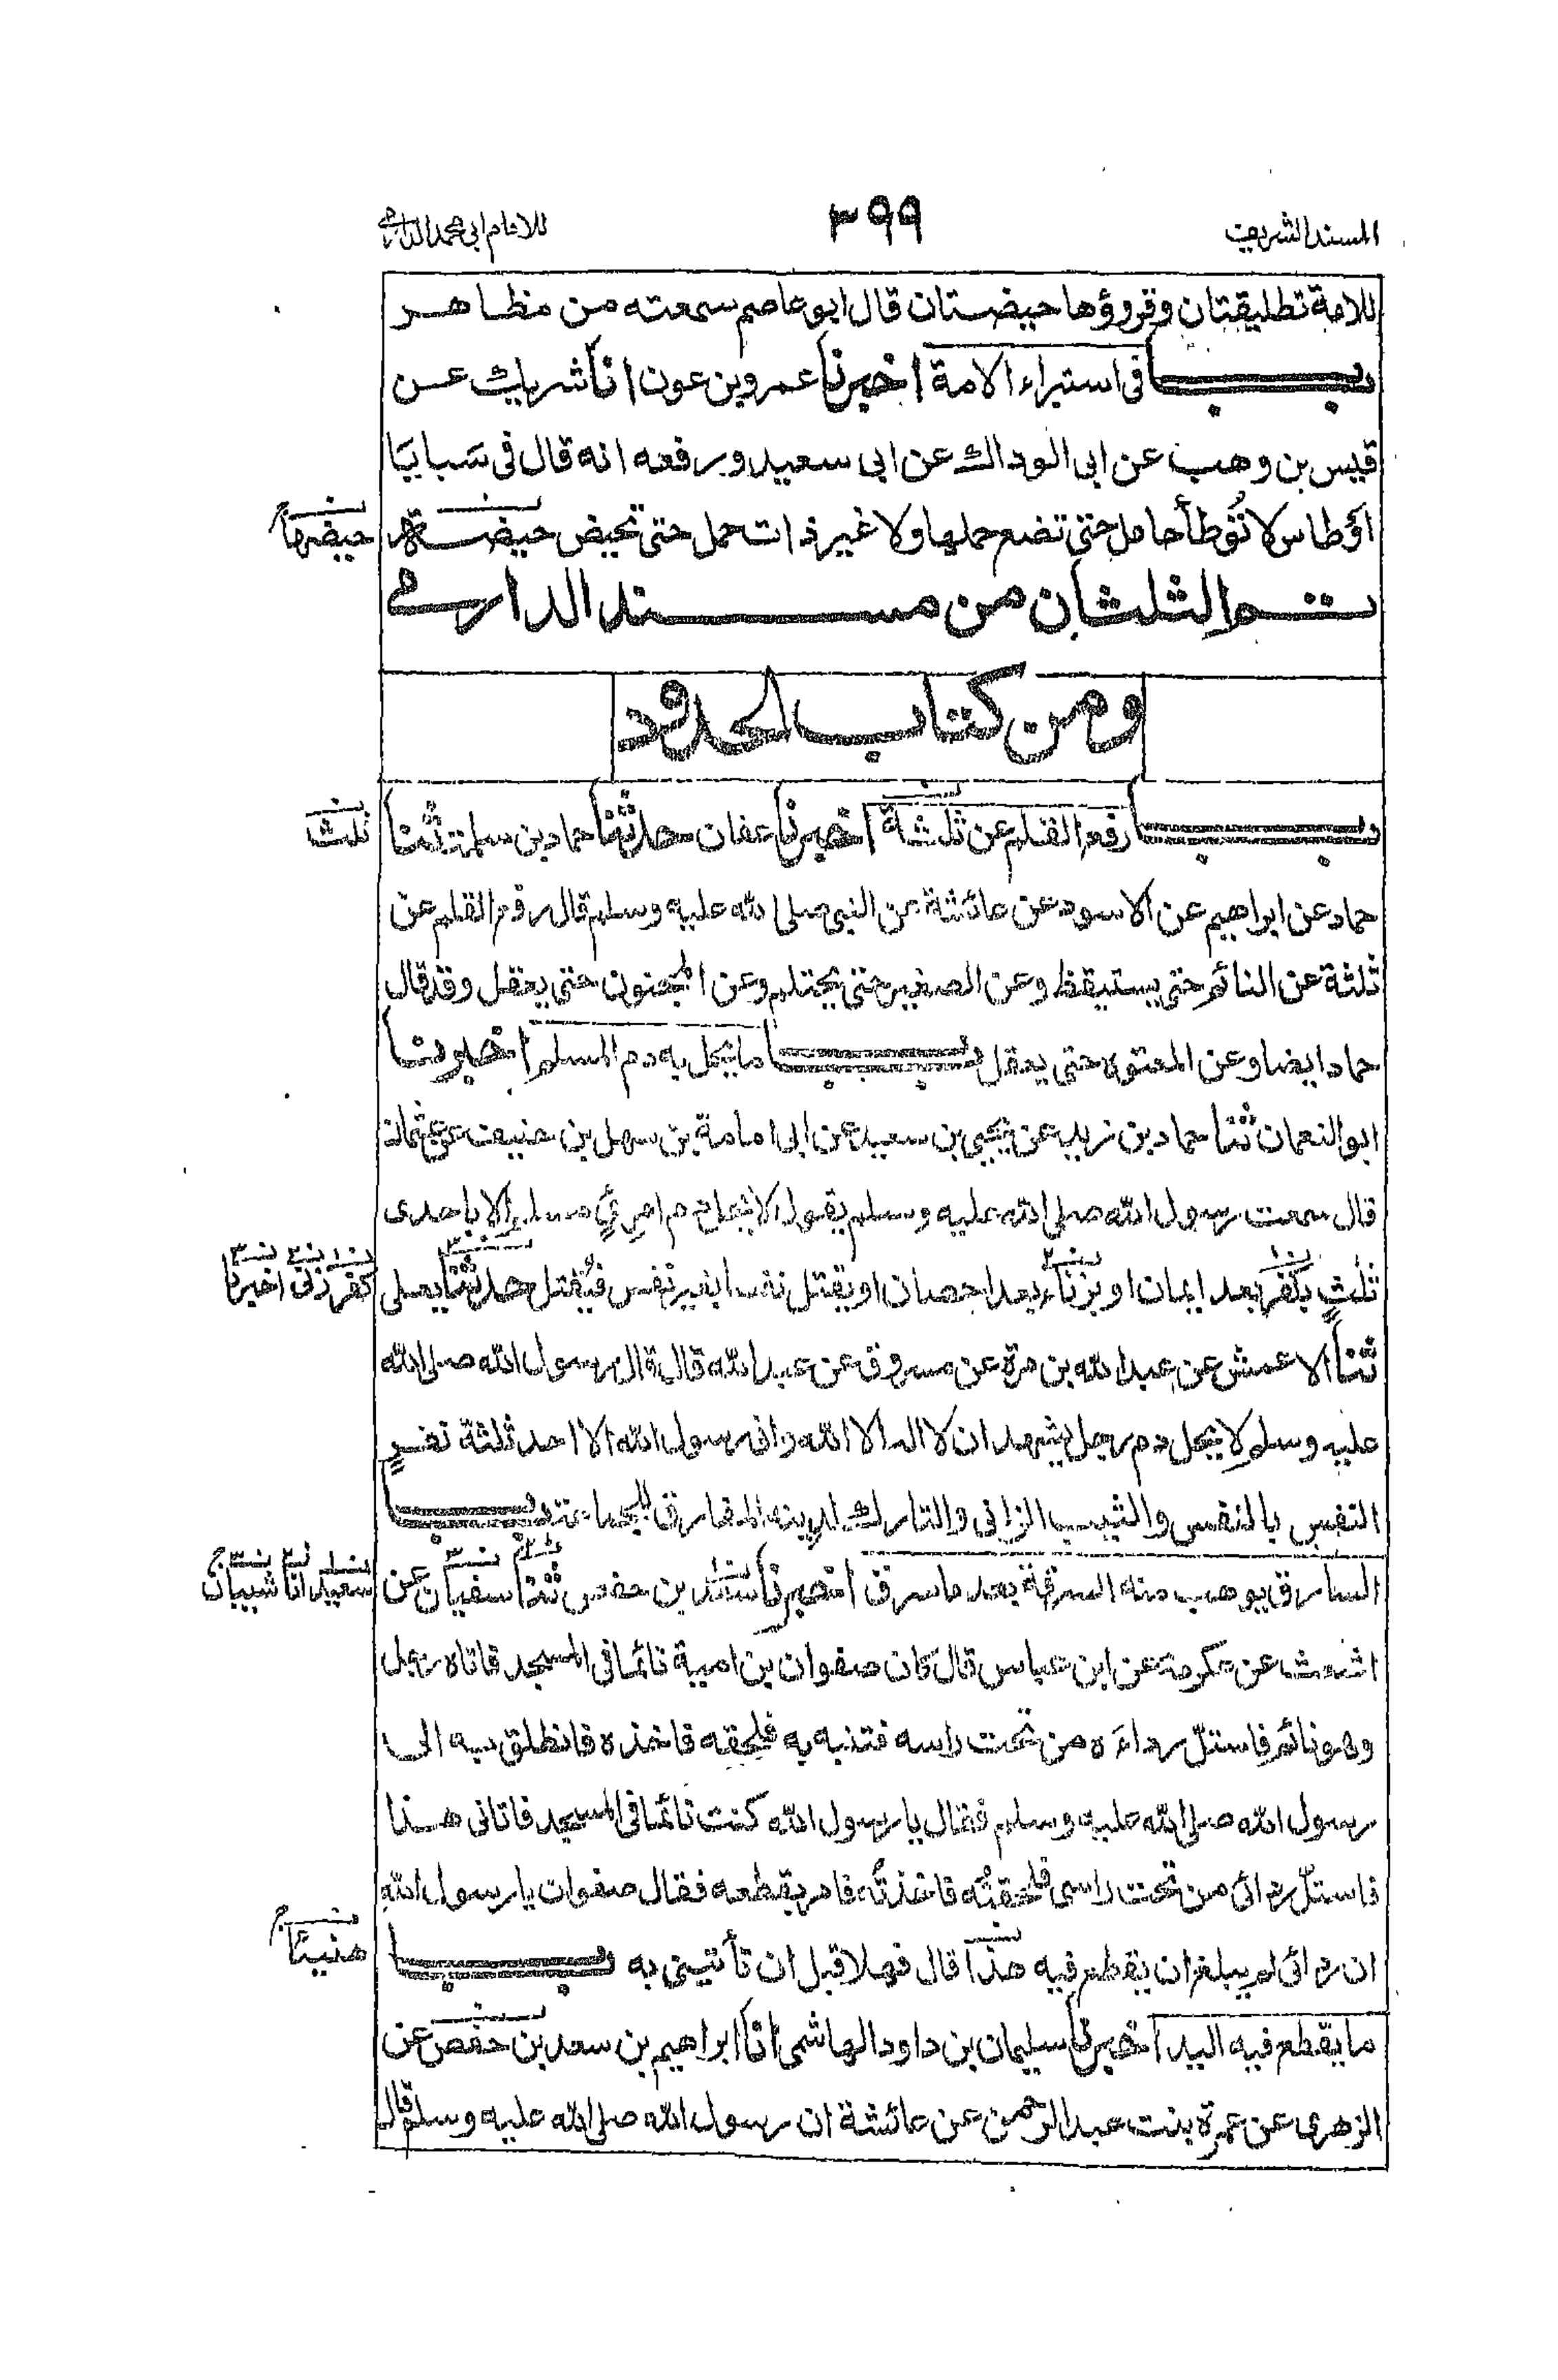 المسند الشريف
٣٩٩
للامام ابي محمد الدارمي
للامة تطليقتان وقروؤها حيضتان قال ابو عاصم سمعته من مظاهر
باب في استبراء الامة اخبرنا عمرو بن عون انا شريك عن
قيس بن وهب عن ابي الوداك عن ابي سعيد ورفعه انه قال في سَبايَا
اَوْطاس لا تُوْطأ حامل حتى تضع حملها ولا غير ذات حمل حتى تحيض حيضة
حيضتها
تم الثلثان من مسند الدارمي
ومن كتاب الحدود
باب رفع القلم عن ثلثة اخبرنا عفان حدثنا حماد بن سلمة ثنا
ثلث
حماد عن ابراهيم عن الاسود عن عائشة عن النبي صلى الله عليه وسلم قال رفع القلم عن
ثلثة عن النائم حتى يستيقظ وعن الصغير حتى يحتلم وعن المجنون حتى يعقل وقد قال
حماد ايضا وعن المعتوه حتى يعقل باب ما يحل به دم المسلم اخبرنا
ابو النعمان ثنا حماد بن زيد عن يحيى بن سعيد عن ابي امامة بن سهل بن حنيف عن عثمان
قال سمعت رسول الله صلى الله عليه وسلم يقول لا يحل دم امرئٍ مسلم الا باحدى
ثلثٍ بكفر بعد ايمان او بزناء بعد احصان او يقتل نفسا بغير نفس فيُقتل حدثنا يعلى
كفر زنى اخبرنا
ثنا الاعمش عن عبد الله بن مرة عن مسروق عن عبد الله قال قال رسول الله صلى الله
عليه وسلم لا يحل دم رجل يشهد ان لا اله الا الله واني رسول الله الا احد ثلثة نفرٍ
النفس بالنفس والثيب الزاني والتارك لدينه المفارق للجماعة باب
السارق يوهب منه السرقة بعد ما سرق اخبرنا سعد بن حفص ثنا سفيان عن
سعيد انا شيبان
اشعث عن عكرمة عن ابن عباس قال كان صفوان بن امية نائما في المسجد فاتاه رجل
وهو نائم فاستلّ رداءَه من تحت راسه فتنبه به فلحقه فاخذه فانطلق به الى
رسول الله صلى الله عليه وسلم فقال يا رسول الله كنت نائما في المسجد فاتاني هذا
فاستلّ ردائي من تحت راسي فلحقتُه فاخذتُه فامر بقطعه فقال صفوان يا رسول الله
ان ردائي لم يبلغ ان يقطع فيه هذا قال فهلا قبل ان تأتيني به باب
ما يقطع فيه اليد اخبرنا سليمان بن داود الهاشمي انا ابراهيم بن سعد بن حفص عن
الزهري عن عمرة بنت عبد الرحمن عن عائشة ان رسول الله صلى الله عليه وسلم قال